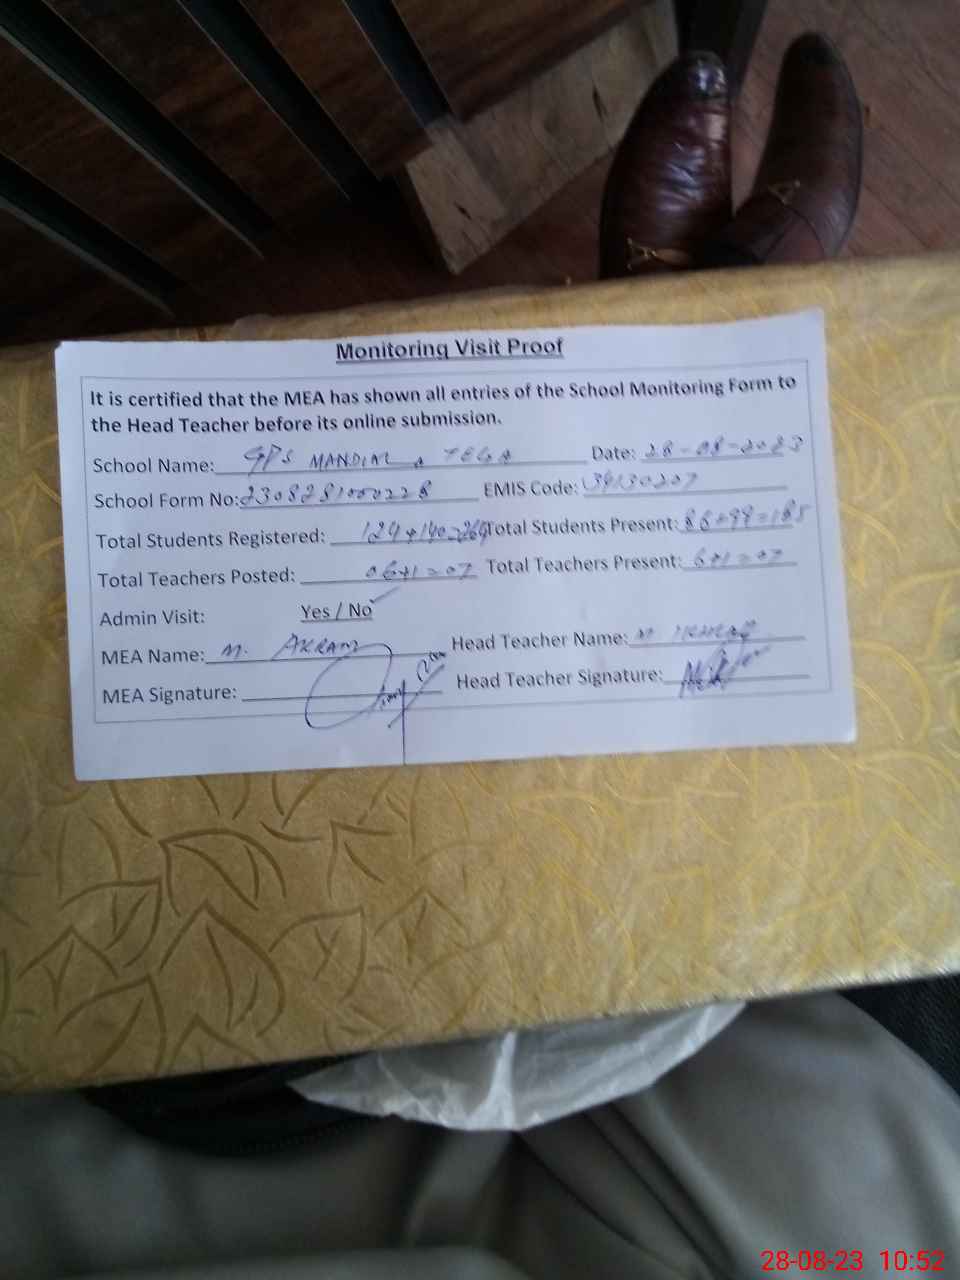 Monitoring Visit Proof
It is certified that the MEA has shown all entries of the School Monitoring Form to
the Head Teacher before its online submission.
School Name: GPS MANDIAL Date: 28-08-2023
School Form No: 2308281000228 EMIS Code: 39130207
Total Students Registered: 124+140=264 Total Students Present: 86+99=185
Total Teachers Posted: 06+1=07 Total Teachers Present: 6+1=07
Admin Visit: Yes / No
MEA Name: M. AKRAM Head Teacher Name: M
MEA Signature: Head Teacher Signature:
28-08-23 10:52